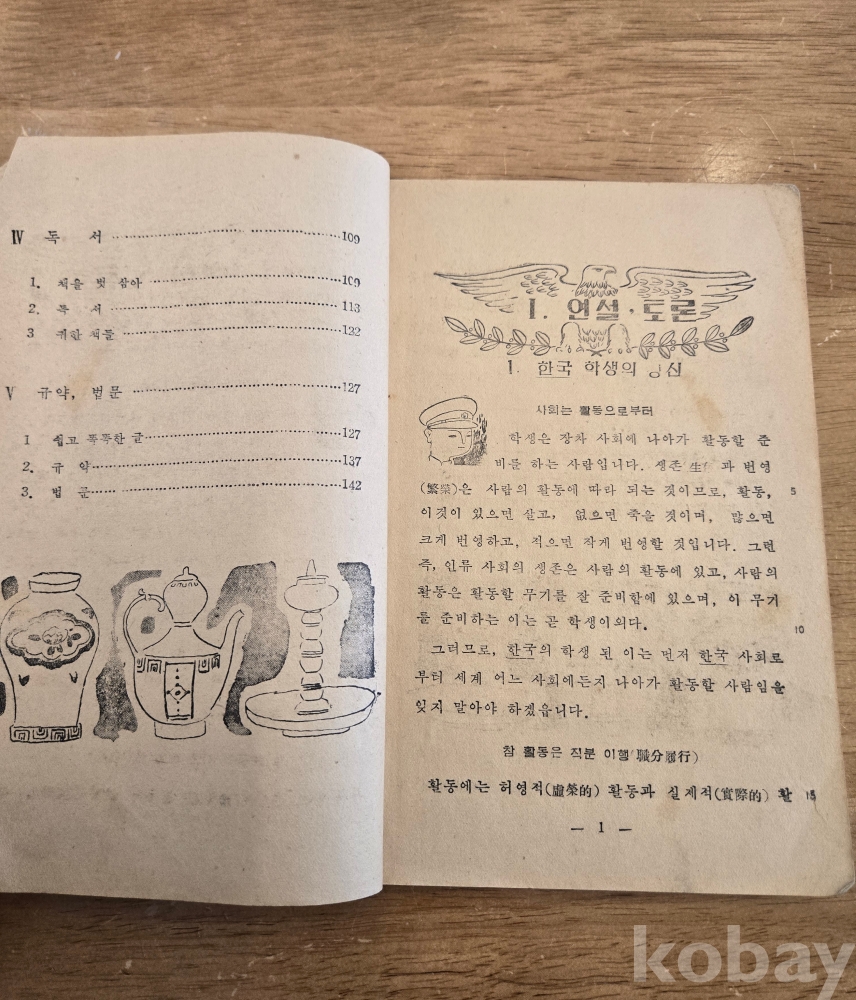 Ⅳ 독 서 ··················109
1. 책을 벗 삼아 ··················109
2. 독 서 ··················113
3 귀한 책들 ··················122
Ⅴ 규약, 법문 ··················127
1 쉽고 똑똑한 글 ··················127
2. 규 약 ··················137
3. 법 문 ··················142
Ⅰ. 연설·토론
1. 한국 학생의 정신
사회는 활동으로부터
학생은 장차 사회에 나아가 활동할 준
비를 하는 사람입니다. 생존 生 과 번영
(繁榮)은 사람의 활동에 따라 되는 것이므로, 활동, 5
이것이 있으면 살고, 없으면 죽을 것이며, 많으면
크게 번영하고, 적으면 작게 번영할 것입니다. 그런
즉, 인류 사회의 생존은 사람의 활동에 있고, 사람의
활동은 활동할 무기를 잘 준비함에 있으며, 이 무기
를 준비하는 이는 곧 학생이외다. 10
그러므로, 한국의 학생 된 이는 먼저 한국 사회로
부터 세계 어느 사회에든지 나아가 활동할 사람임을
잊지 말아야 하겠읍니다.
참 활동은 직분 이행(職分履行)
활동에는 허영적(虛榮的) 활동과 실제적(實際的) 활 15
— 1 —
kobay